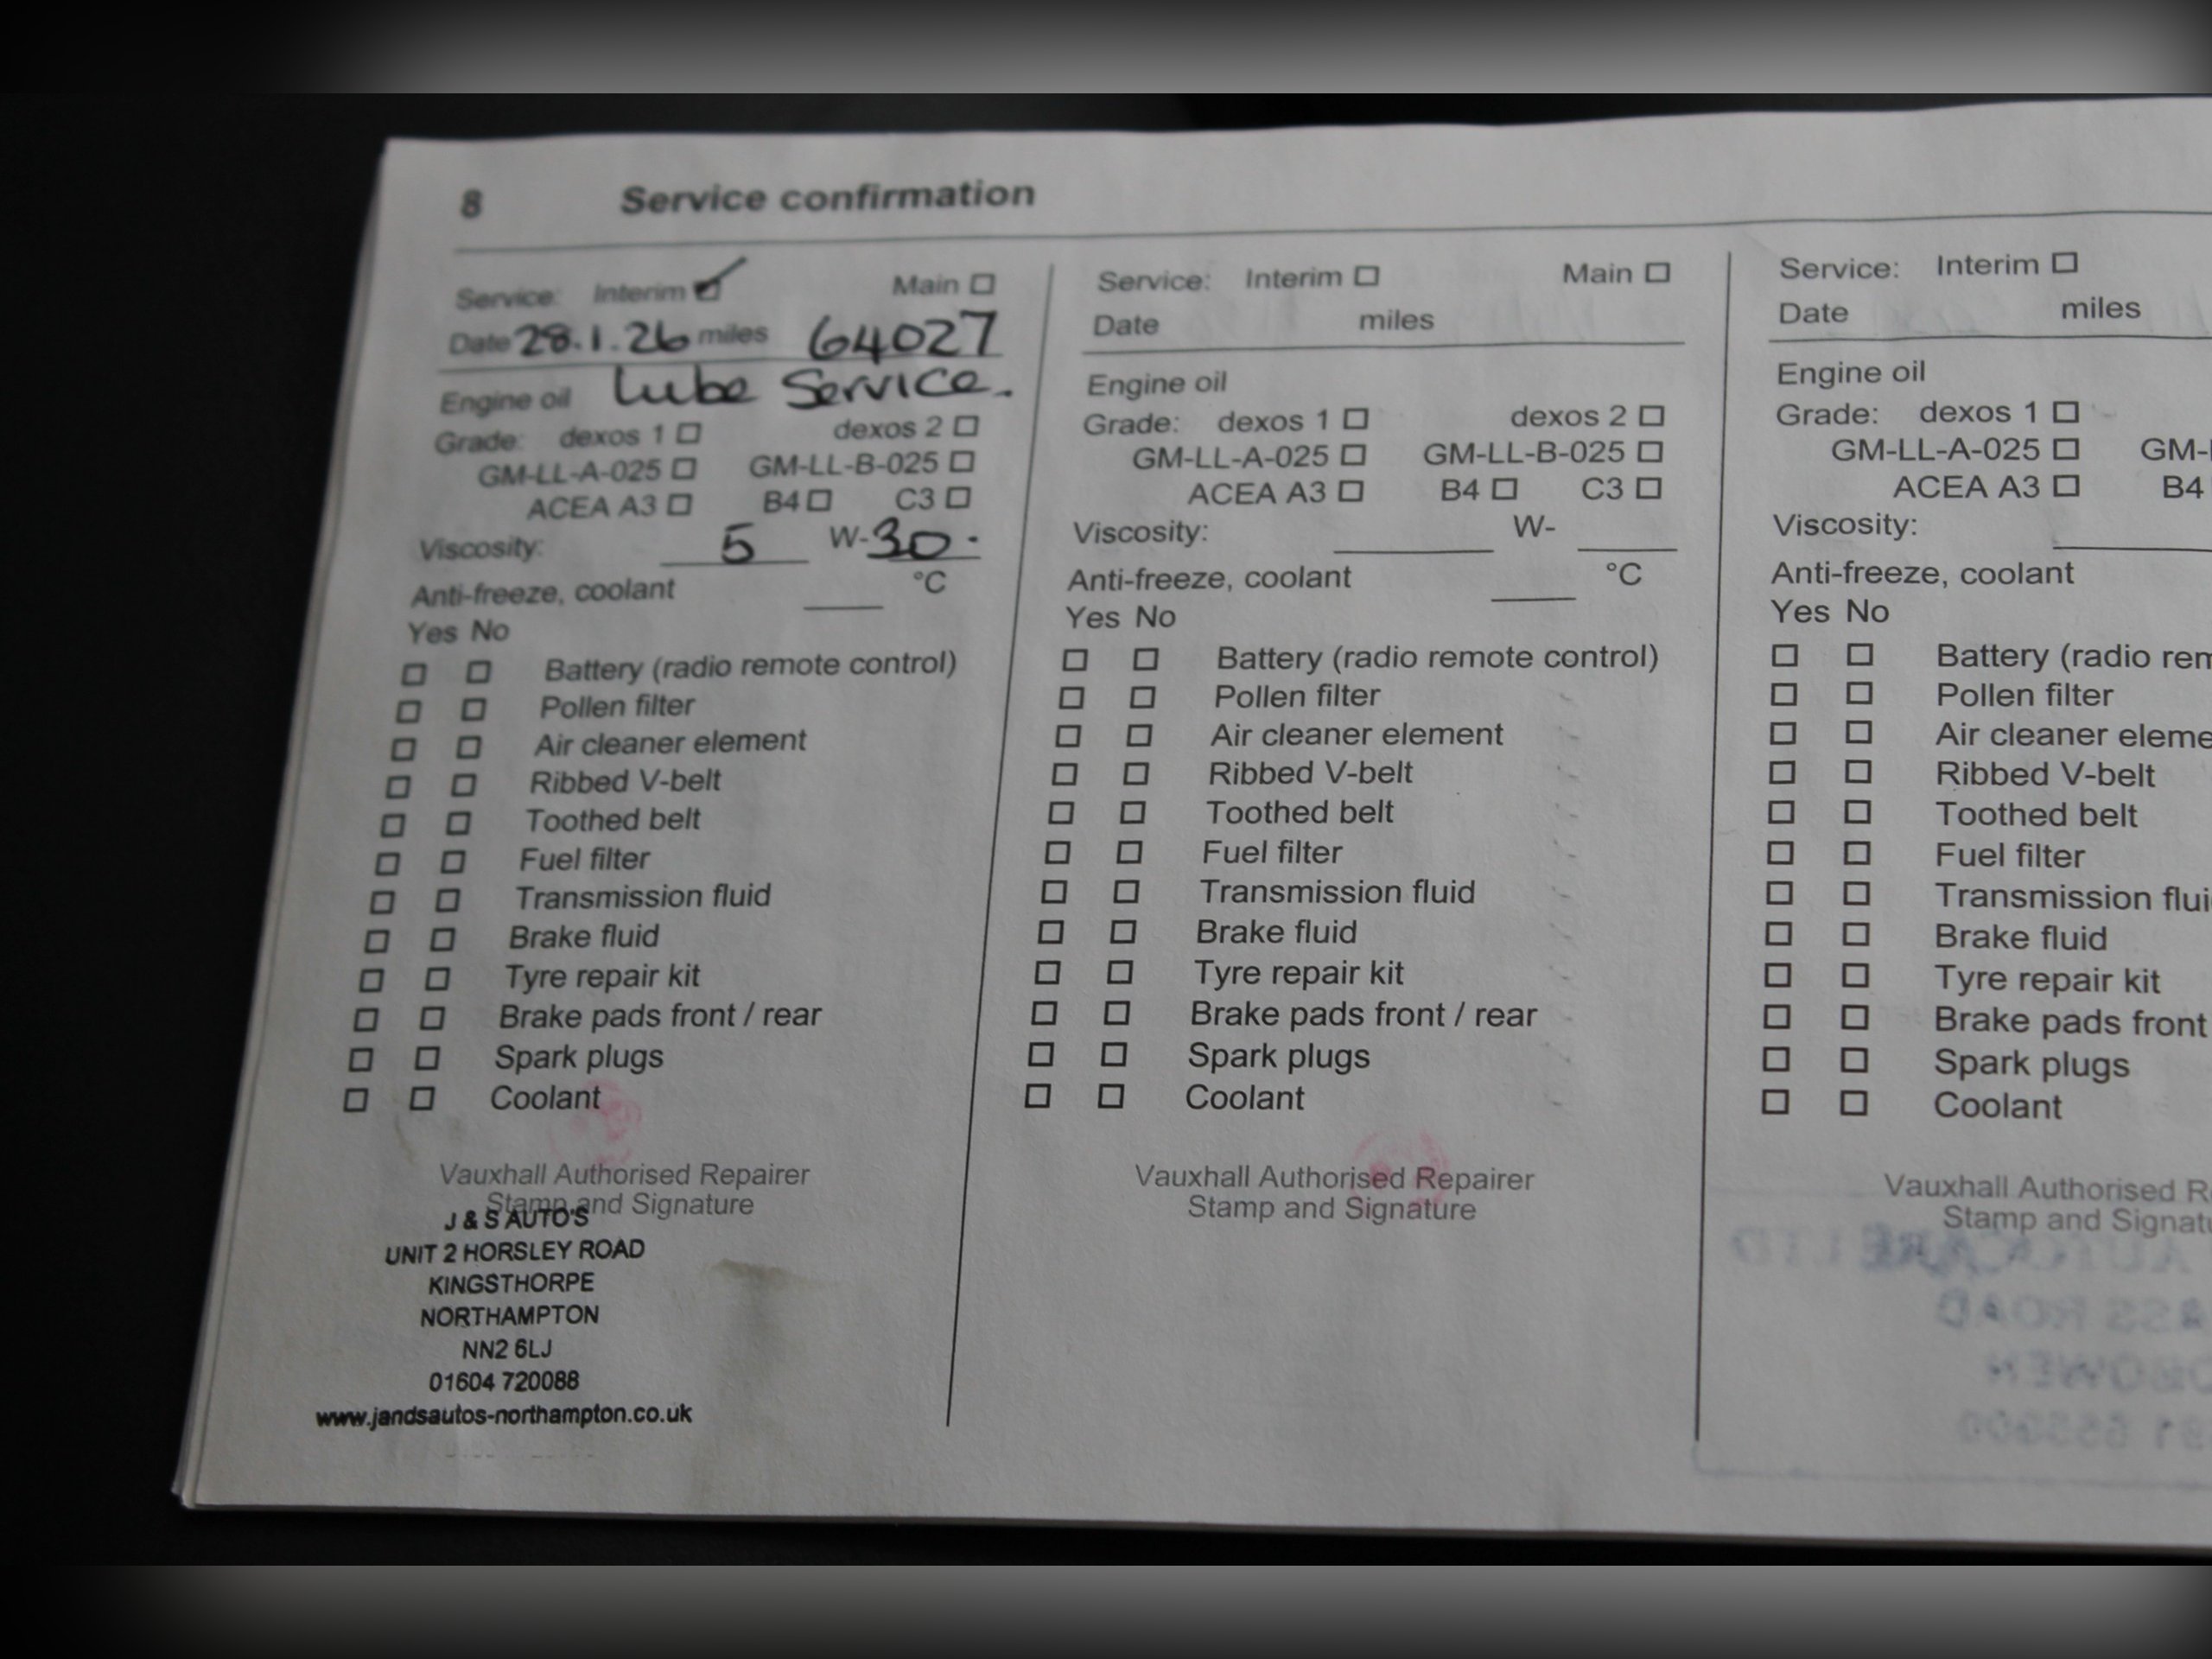 8 Service confirmation
Service: Interim Main
Date 28.1.26 miles 64027
Engine oil Lube Service.
Grade: dexos 1 dexos 2
GM-LL-A-025 GM-LL-B-025
ACEA A3 B4 C3
Viscosity: 5 W-30.
Anti-freeze, coolant °C
Yes No
Battery (radio remote control)
Pollen filter
Air cleaner element
Ribbed V-belt
Toothed belt
Fuel filter
Transmission fluid
Brake fluid
Tyre repair kit
Brake pads front / rear
Spark plugs
Coolant
Vauxhall Authorised Repairer
Stamp and Signature
J & S AUTO'S
UNIT 2 HORSLEY ROAD
KINGSTHORPE
NORTHAMPTON
NN2 6LJ
01604 720088
www.jandsautos-northampton.co.uk
Service: Interim Main
Date miles
Engine oil
Grade: dexos 1 dexos 2
GM-LL-A-025 GM-LL-B-025
ACEA A3 B4 C3
Viscosity: W-
Anti-freeze, coolant °C
Yes No
Battery (radio remote control)
Pollen filter
Air cleaner element
Ribbed V-belt
Toothed belt
Fuel filter
Transmission fluid
Brake fluid
Tyre repair kit
Brake pads front / rear
Spark plugs
Coolant
Vauxhall Authorised Repairer
Stamp and Signature
Service: Interim
Date miles
Engine oil
Grade: dexos 1
GM-LL-A-025 GM-
ACEA A3 B4
Viscosity:
Anti-freeze, coolant
Yes No
Battery (radio rem
Pollen filter
Air cleaner eleme
Ribbed V-belt
Toothed belt
Fuel filter
Transmission flui
Brake fluid
Tyre repair kit
Brake pads front
Spark plugs
Coolant
Vauxhall Authorised R
Stamp and Signat